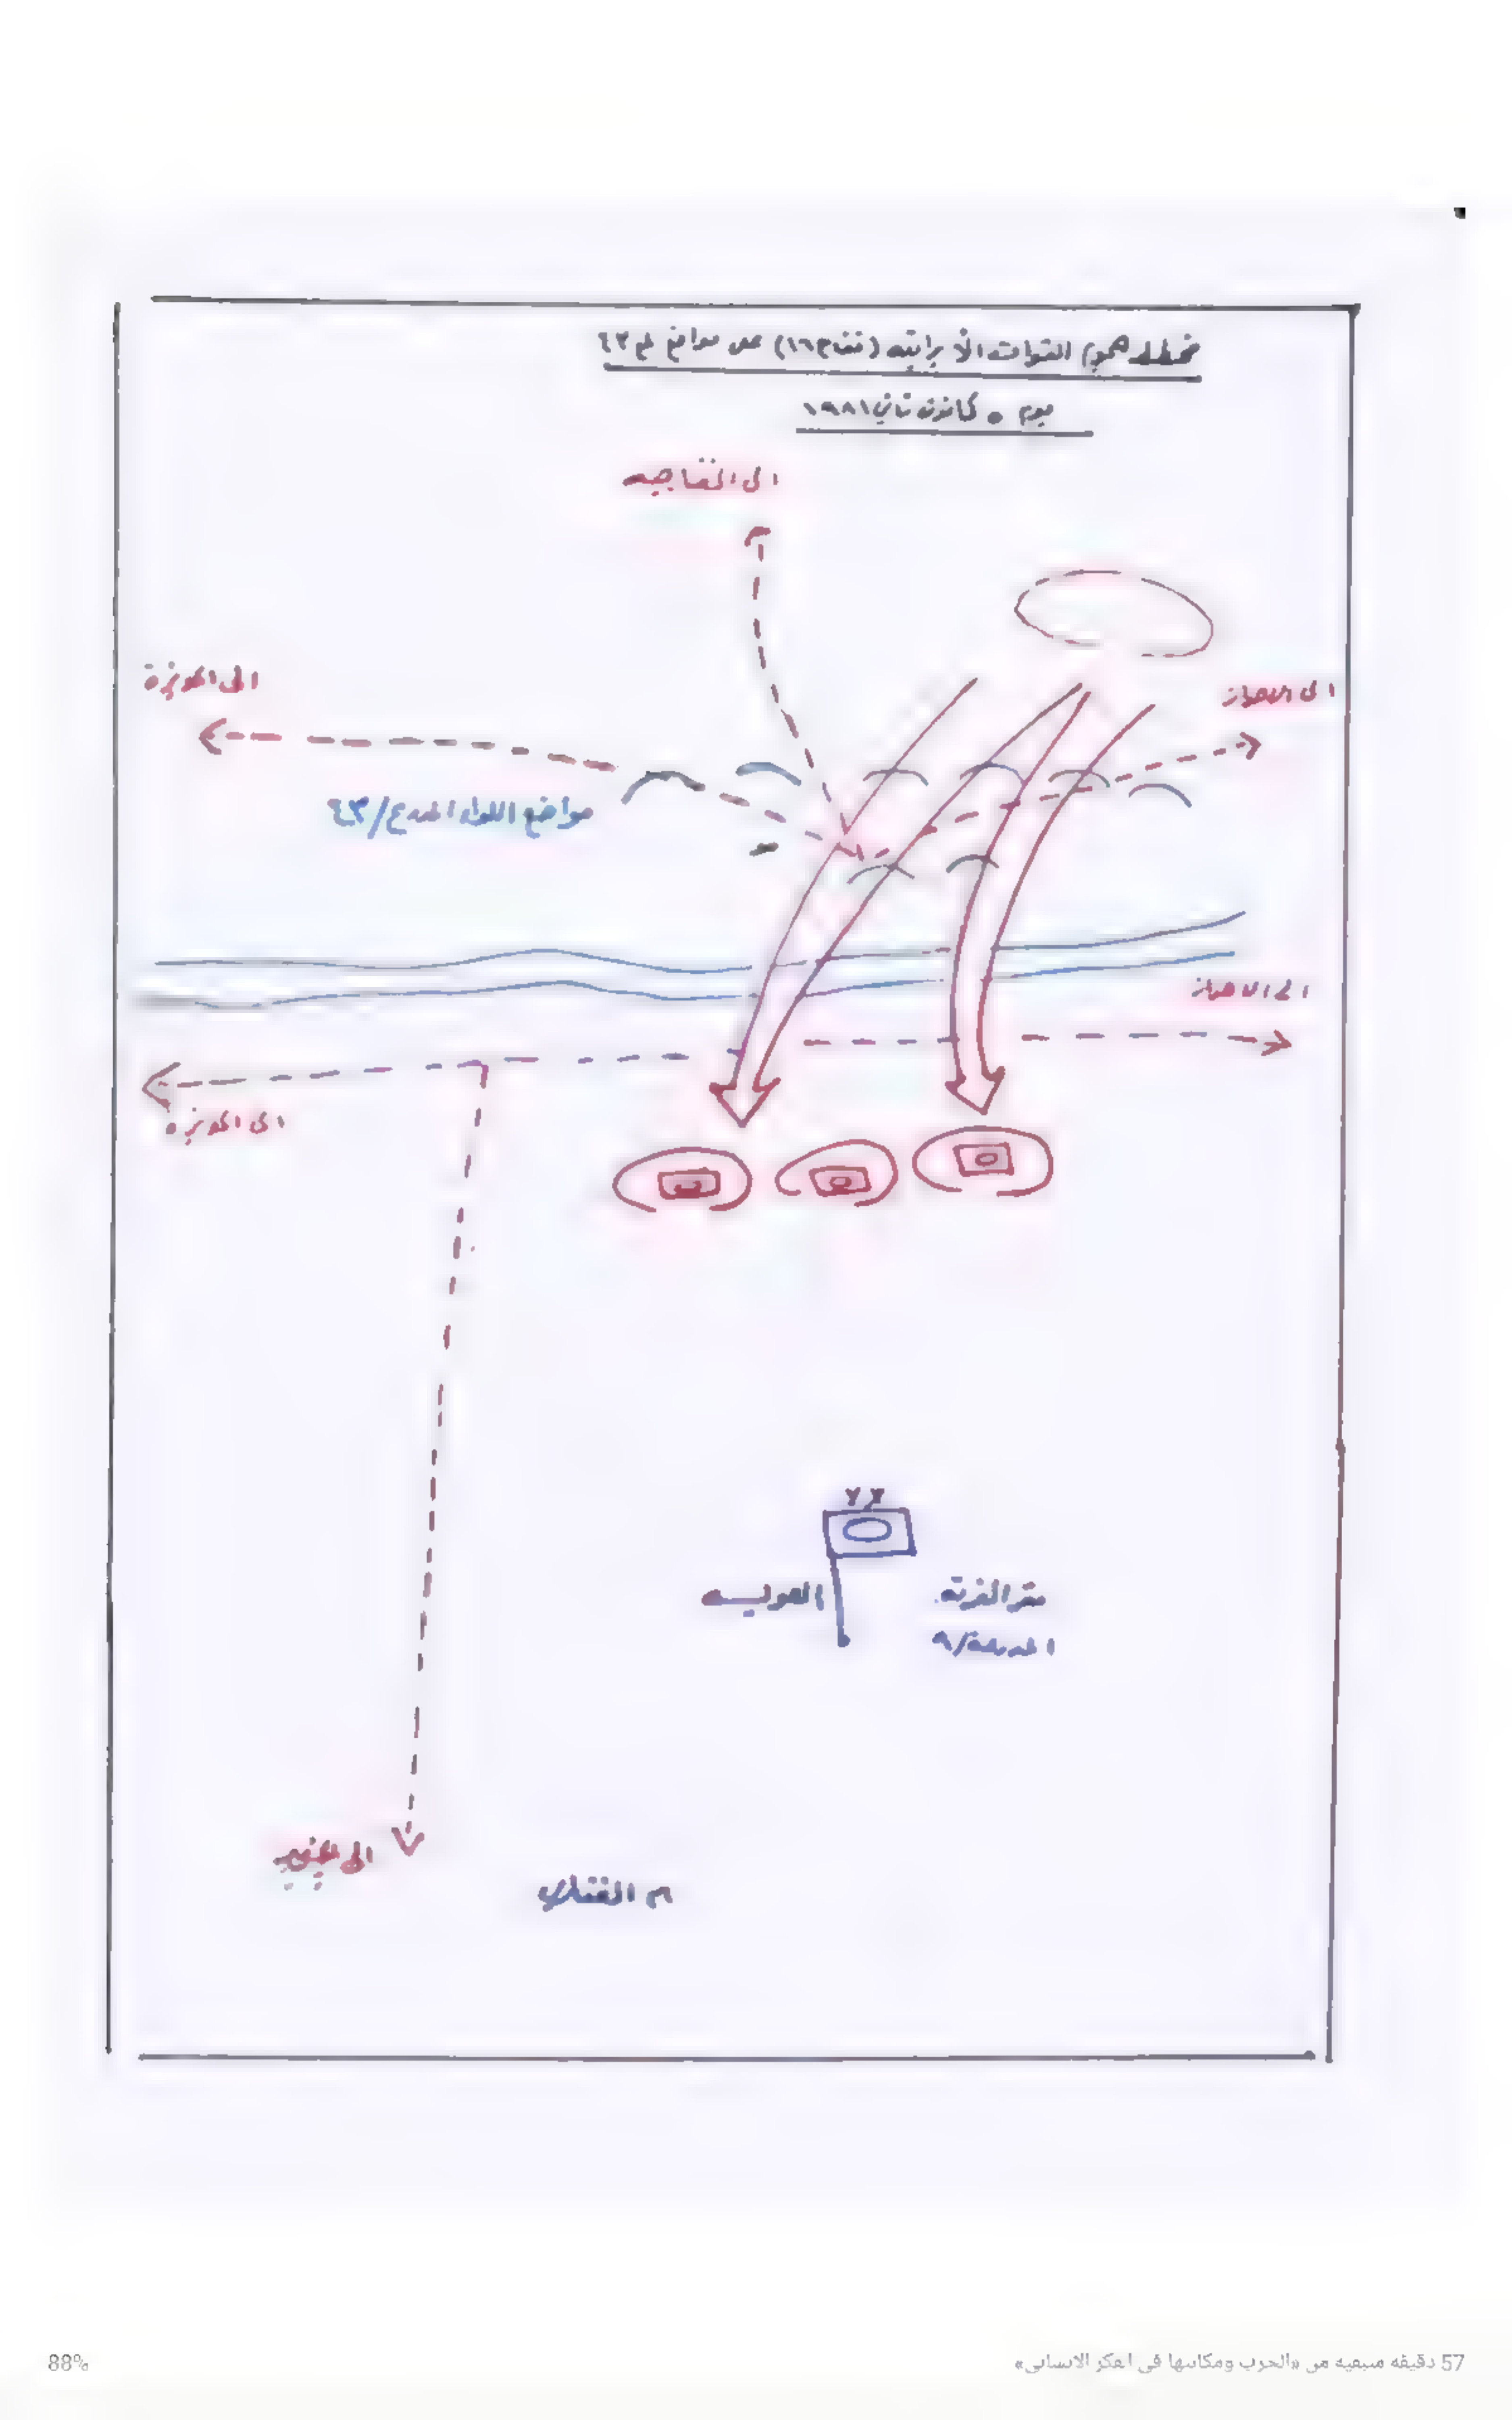 مخطط هجوم القوات الايرانية (نقاج ١٦) على مواضع لم ٤٣
يوم ٥ كانون ثاني ١٩٨١
الى الخفاجيه
الى الحويزة
الى الاهواز
مواضع اللواء المدرع/٤٣
الى الاهواز
الى الحويزه
مقر الفرقه
المدرعة/٩
الى الجفير
57 دقيقة متبقية من «الحرب ومكانتها في الفكر الإنساني»
88%